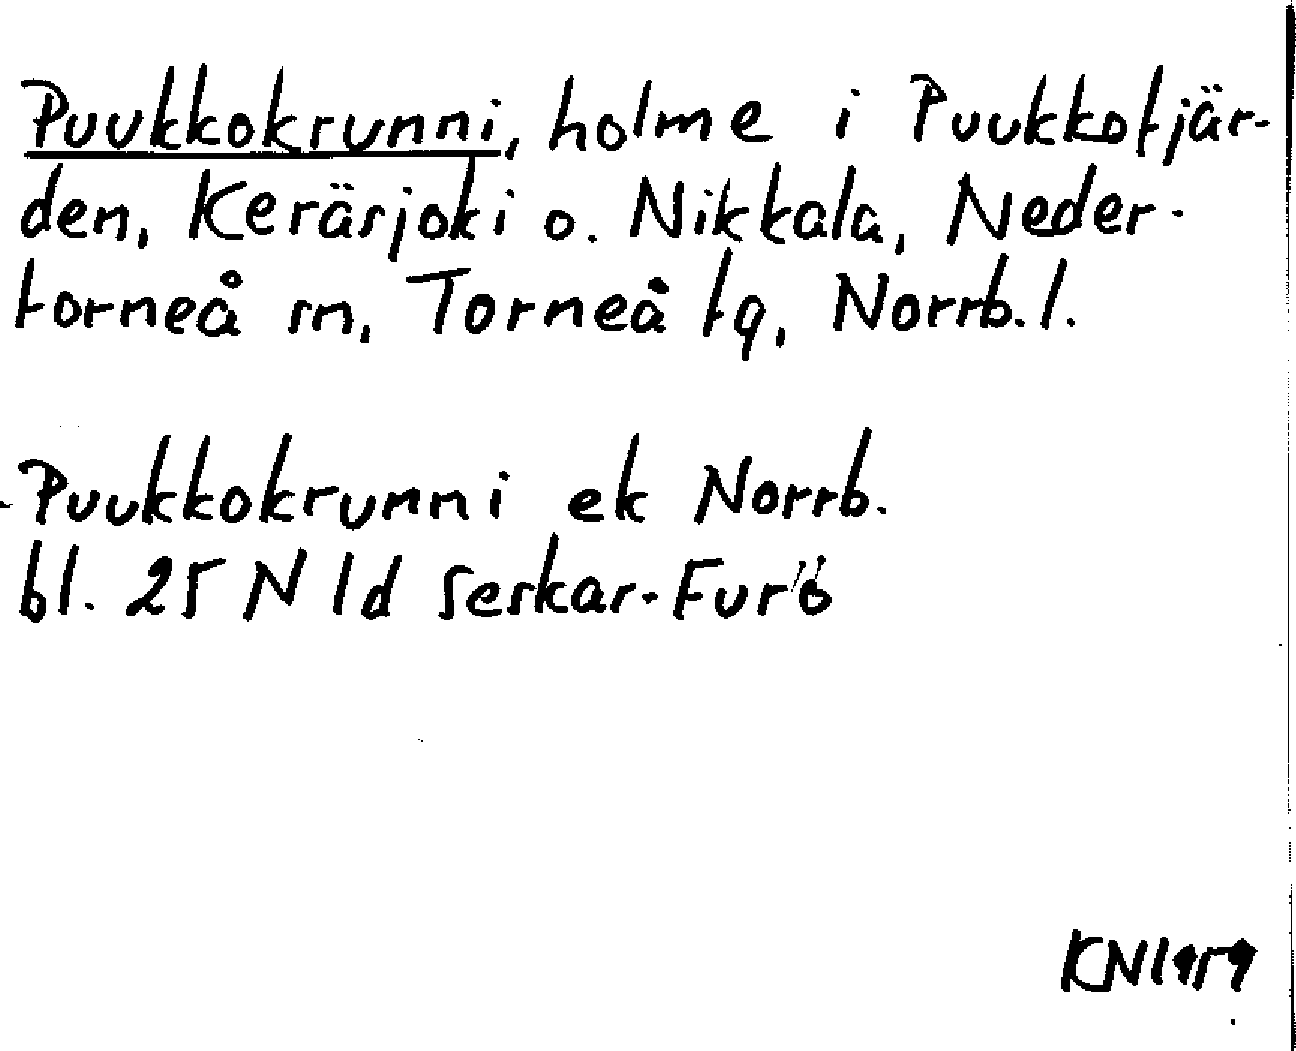 Puukkokrunni, holme i Puukkofjär-
den, Keräsjoki o. Nikkala, Neder-
torneå sn, Torneå tg, Norrb. l.
Puukkokrunni ek Norrb.
bl. 25 N Id Seskar-Furö
KN 1959